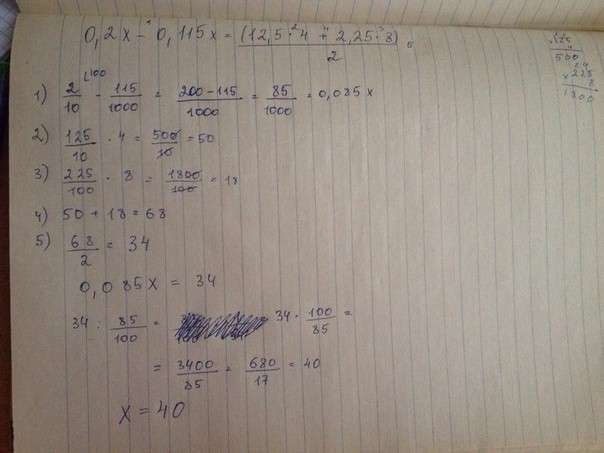 0,2x - 0,115x = (12,5·4 + 2,25·8) / 2
1) 2/10 - 115/1000 = 200-115/1000 = 85/1000 = 0,085x
2) 125/10 · 4 = 500/10 = 50
3) 225/100 · 8 = 1800/100 = 18
4) 50 + 18 = 68
5) 68/2 = 34
0,085x = 34
34 : 85/100 = 34 · 100/85 =
= 3400/85 = 680/17 = 40
x = 40
125
4
500
× 225
8
1800